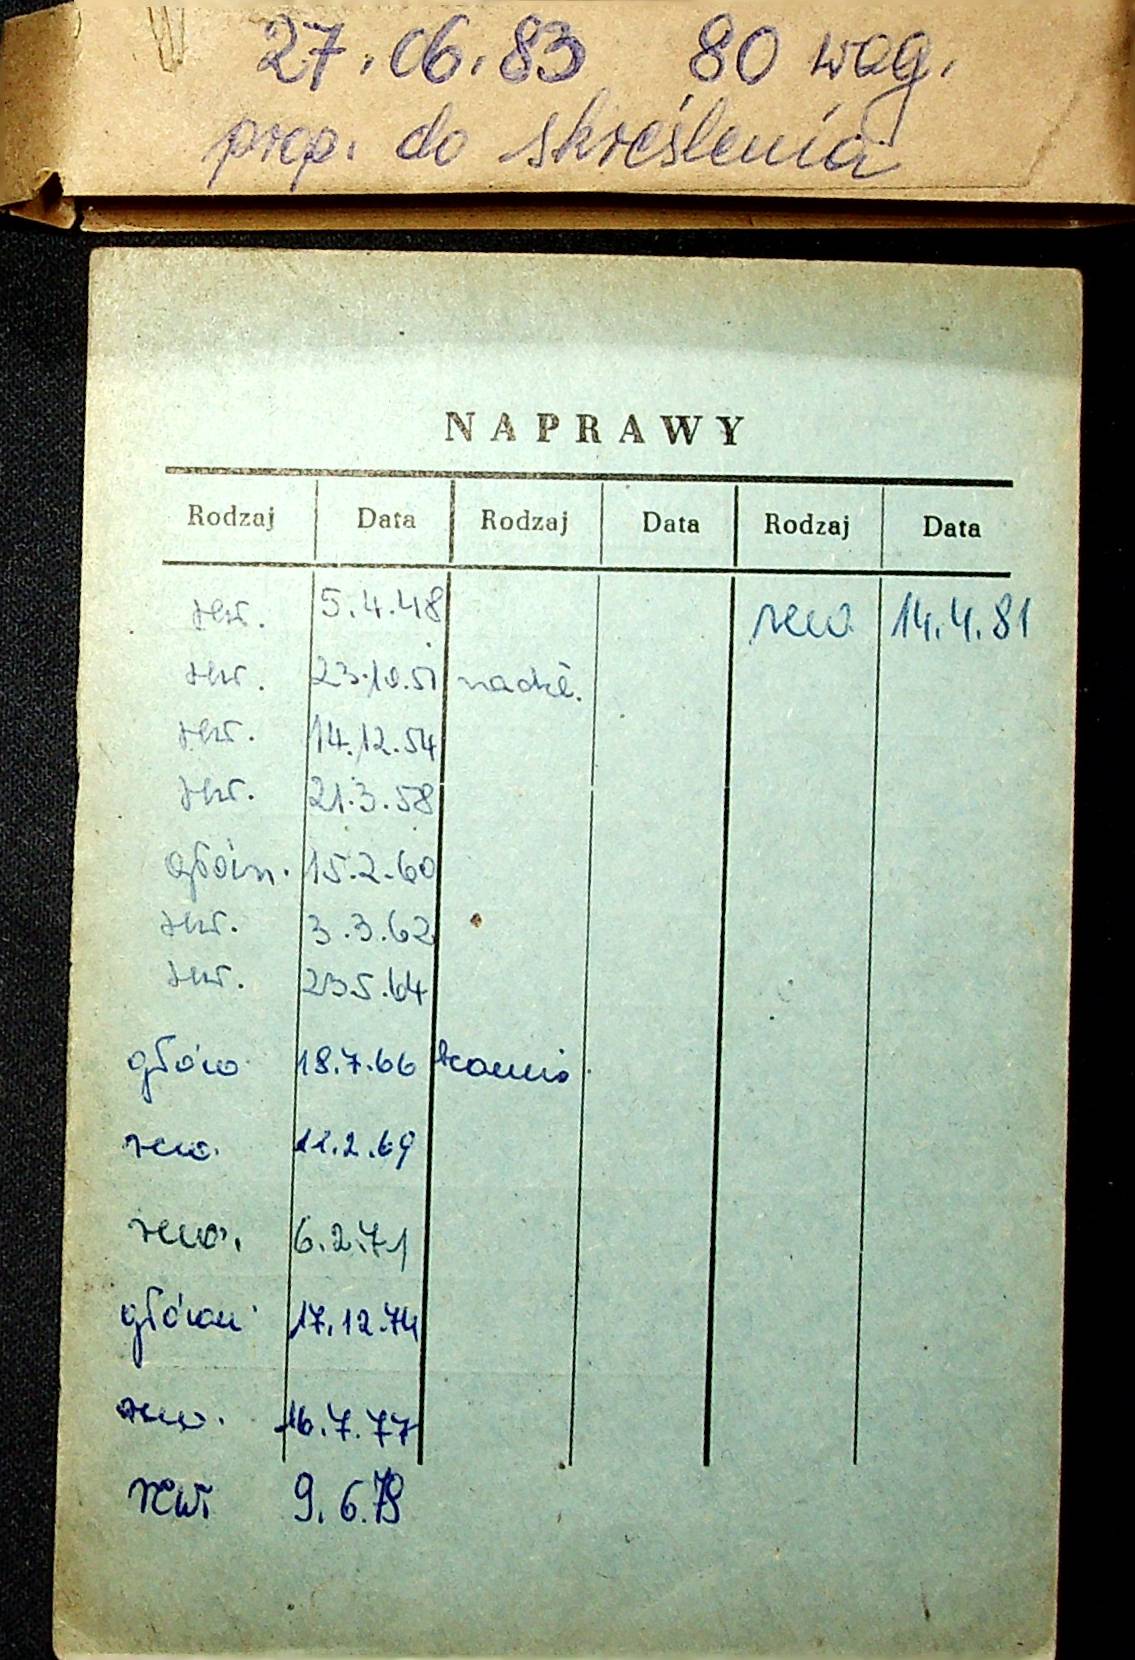 27.06.83 80 wag.
prop. do skreślenia
NAPRAWY
Rodzaj Data Rodzaj Data Rodzaj Data
5.4.48 rew. 14.4.81
23.10.51 nadzw.
14.12.54
21.3.58
główn. 15.2.60
3.3.62
23.5.64
główn. 18.7.66
rew. 11.2.69
rew. 6.2.71
główn. 17.12.74
rew. 16.7.77
rew. 9.6.79